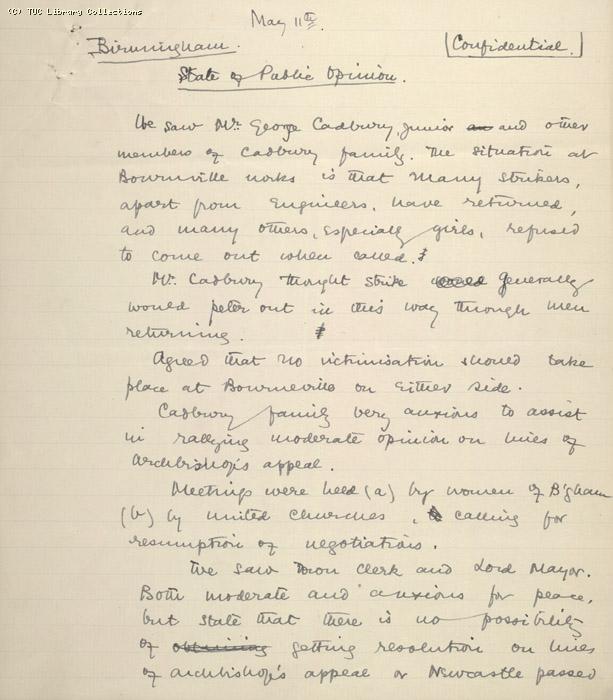 (C) TUC Library Collections
May 11th.
Birmingham. [Confidential.]
State of Public Opinion.
We saw Mr. George Cadbury, Junior and other
members of Cadbury family. The situation at
Bournville works is that many strikers,
apart from Engineers, have returned,
and many others, especially girls, refused
to come out when called.
Mr. Cadbury thought strike generally
would peter out in this way through men
returning.
Agreed that no victimisation should take
place at Bourneville on either side.
Cadbury family very anxious to assist
in rallying moderate opinion on lines of
Archbishop's appeal.
Meetings were held (a) by women of B'gham
(b) by united churches, calling for
resumption of negotiations.
We saw Town Clerk and Lord Mayor.
Both moderate and anxious for peace,
but state that there is no possibility
of obtaining getting resolution on lines
of archbishop's appeal or Newcastle passed